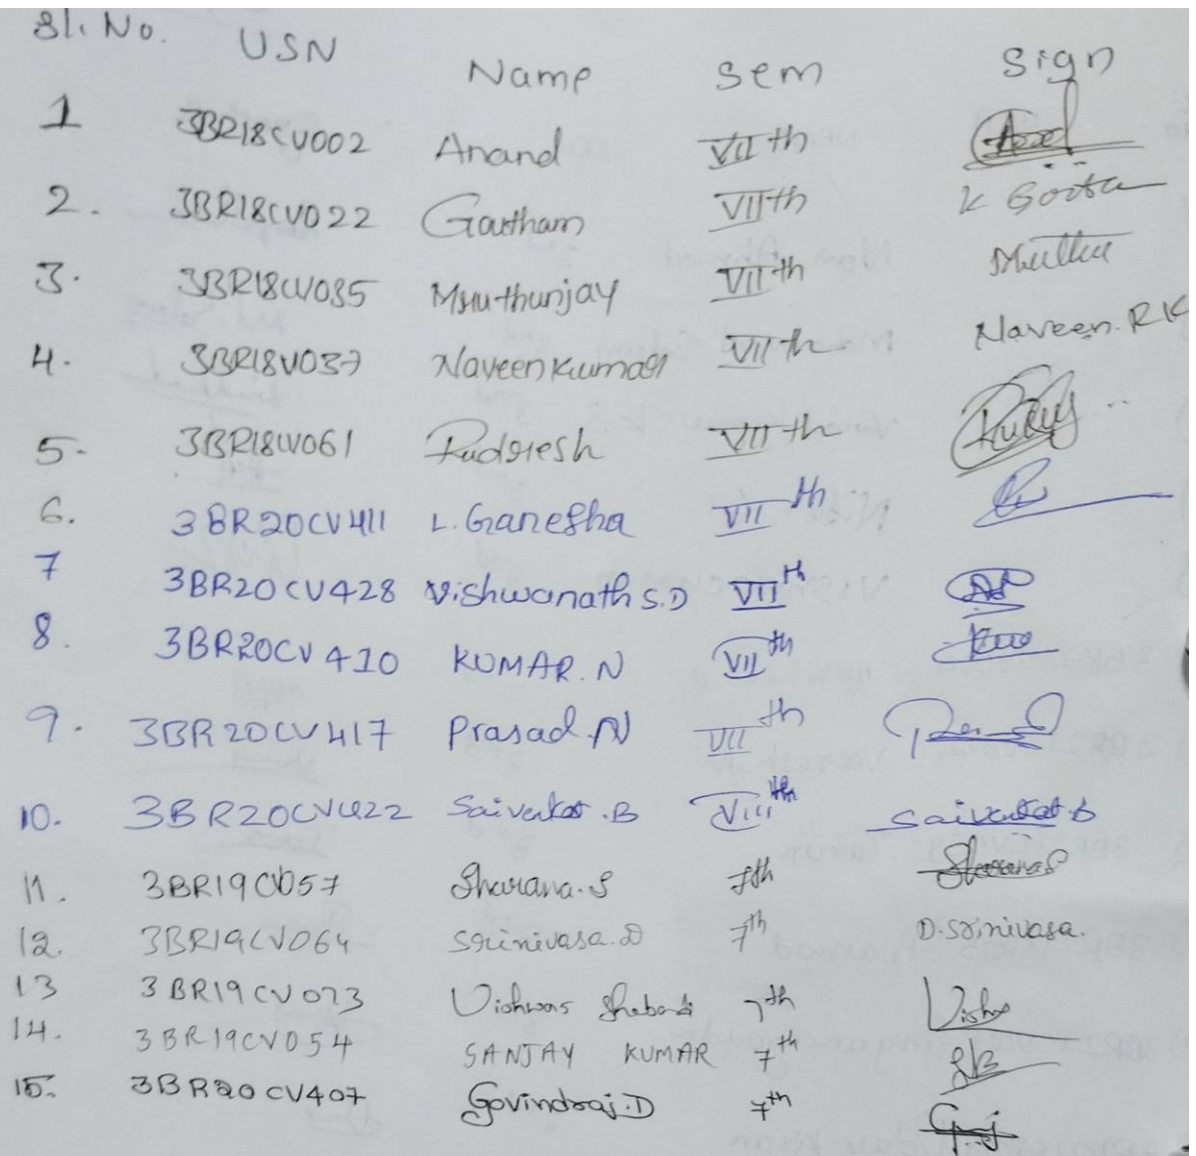 Sl. No. USN Name Sem Sign
1 3BR18CV002 Anand VIIth
2. 3BR18CV022 Goutham VIIth K Gouta
3. 3BR18CV035 Mruthunjay VIIth Muttu
4. 3BR18V037 Naveenkumar VIIth Naveen. RK
5. 3BR18CV061 Rudresh VIIth
6. 3BR20CV411 L. Ganesha VIIth
7 3BR20CV428 Vishwanath S.D VIIth
8. 3BR20CV410 KUMAR. N VIIth
9. 3BR20CV417 Prasad. N VIIth
10. 3BR20CV422 Saivenkat .B VIIIth Saivenkat B
11. 3BR19CV057 Sharana. S 7th
12. 3BR19CV064 Srinivasa. D 7th D. Srinivasa.
13 3BR19CV073 Vishwas 7th
14. 3BR19CV054 SANJAY KUMAR 7th
15. 3BR20CV407 Govindraj. D 7th